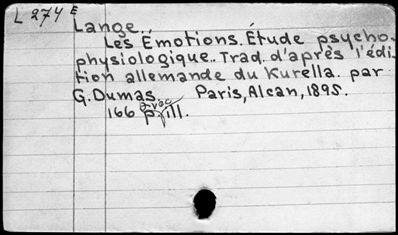 L 274 E
Lange..
Les Émotions. Étude psycho-
physiologique.. Trad. d'après l'édi-
tion allemande du Kurella. par
G. Dumas. Paris, Alcan, 1895.
avec
166 p. ill.